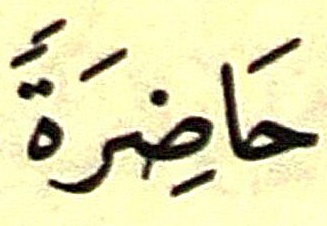 حَاضِرَةً